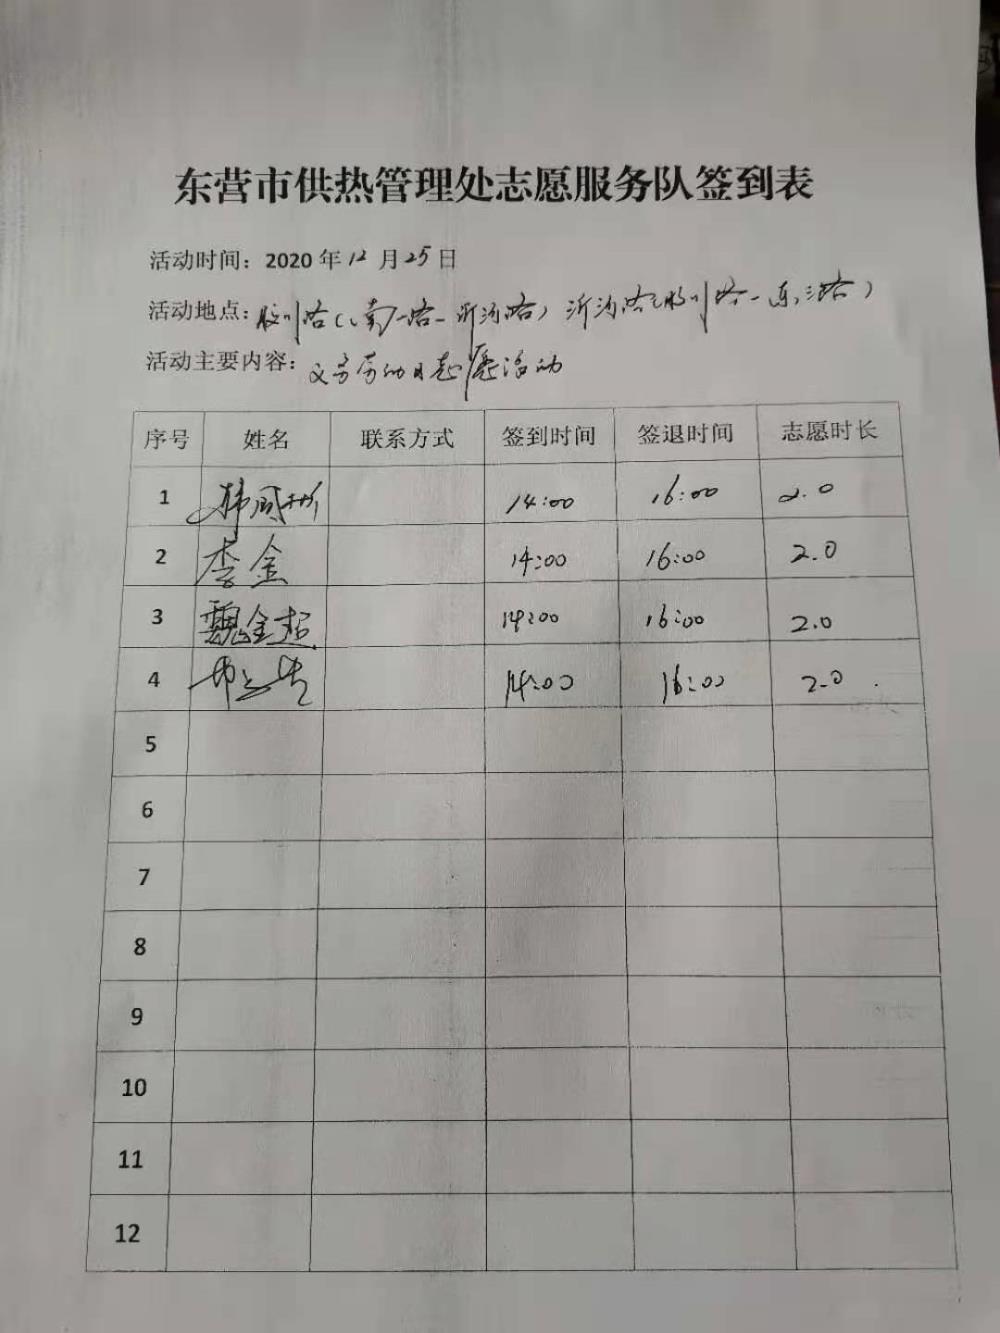 东营市供热管理处志愿服务队签到表
活动时间：2020年12月25日
活动地点：胶州路（南一路-沂河路）沂河路（胶州路-东三路）
活动主要内容：义务劳动日志愿活动
序号 姓名 联系方式 签到时间 签退时间 志愿时长
1 韩 14:00 16:00 2.0
2 李金 14:00 16:00 2.0
3 魏金超 14:00 16:00 2.0
4 14:00 16:00 2.0
5
6
7
8
9
10
11
12